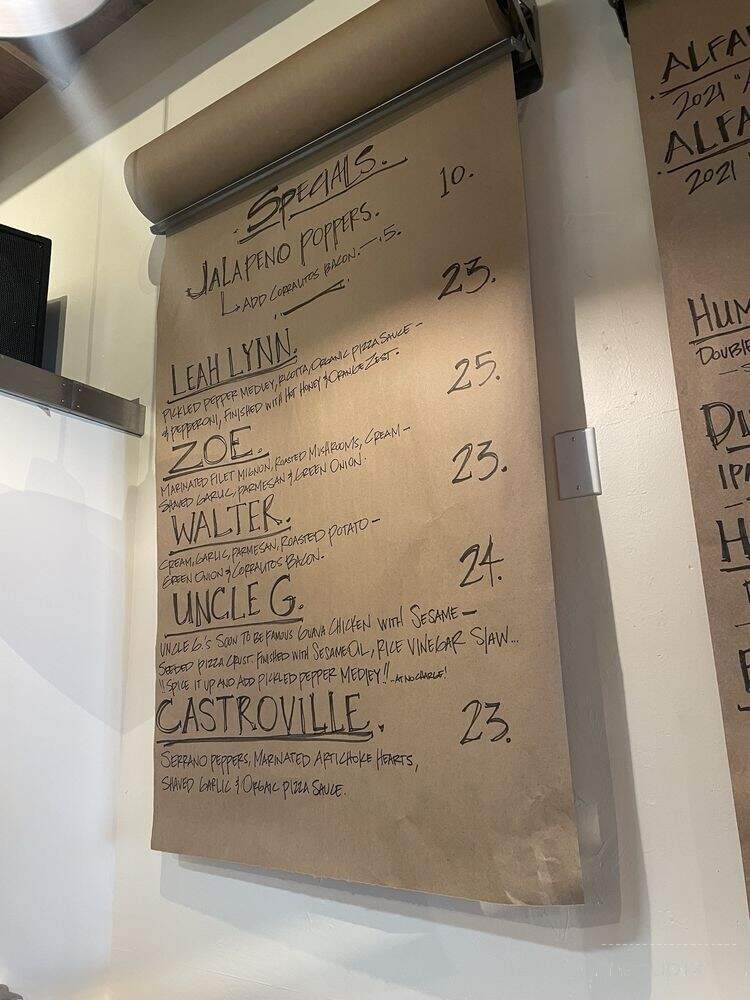 SPECIALS.
JALAPENO POPPERS. 10.
ADD CORRALITOS BACON. — .5.
LEAH LYNN. 23.
PICKLED PEPPER MEDLEY, RICOTTA, ORGANIC PIZZA SAUCE –
& PEPPERONI, FINISHED WITH HOT HONEY & ORANGE ZEST.
ZOE. 25.
MARINATED FILET MIGNON, ROASTED MUSHROOMS, CREAM –
SHAVED GARLIC, PARMESAN & GREEN ONION.
WALTER. 23.
CREAM, GARLIC, PARMESAN, ROASTED POTATO –
GREEN ONION & CORRALITOS BACON.
UNCLE G. 24.
UNCLE G.'S SOON TO BE FAMOUS GUAVA CHICKEN WITH SESAME —
SEEDED PIZZA CRUST. FINISHED WITH SESAME OIL, RICE VINEGAR SLAW...
!! SPICE IT UP AND ADD PICKLED PEPPER MEDLEY!! ..AT NO CHARGE!
CASTROVILLE. 23.
SERRANO PEPPERS, MARINATED ARTICHOKE HEARTS,
SHAVED GARLIC & ORGAIC PIZZA SAUCE.
ALFA
2021 "A
ALFA
2021 "
HUM
DOUBLE
IPA
H